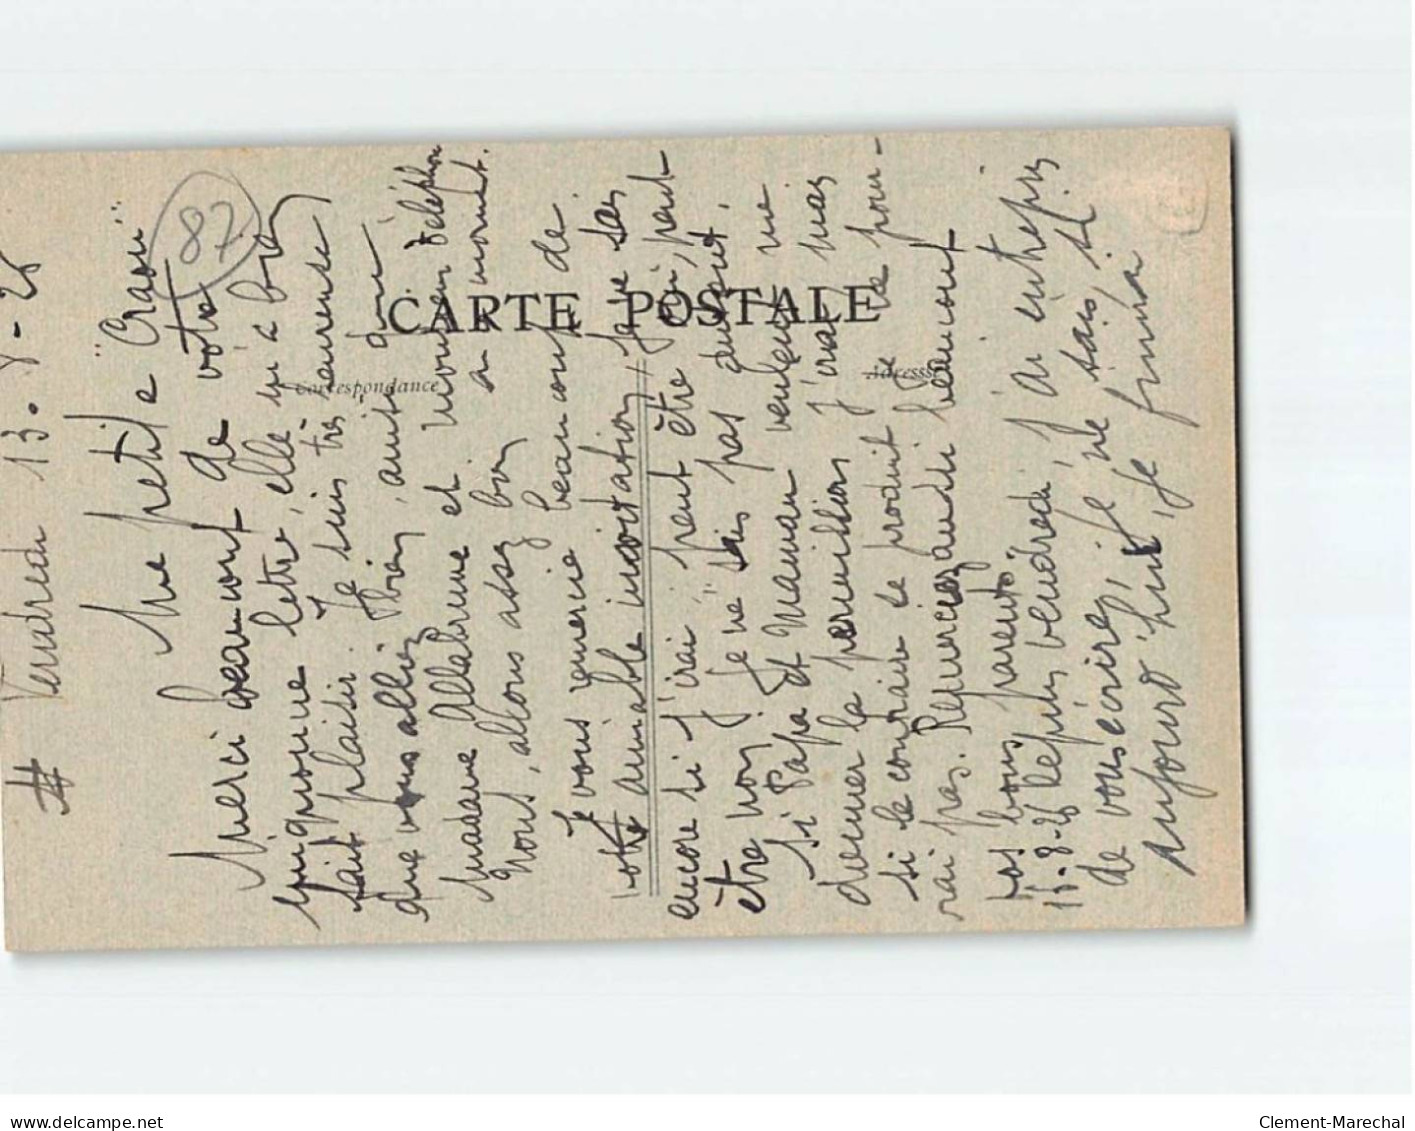 # Vendredi 13 - 8 - 26
Ma petite "Crasou"
Merci beaucoup de votre
mignonne lettre, elle qui a bien
fait plaisir. Je suis très heureuse
que vous alliez bien, ainsi que
Madame Allebrune et Monsieur
Nous, allons assez bien en moment.
Je vous remercie beaucoup de
votre aimable invitation, je ne sais
encore si j'irai, peut être oui, peut-
être non, je ne sais pas autant,
si Papa et Maman veulent me
donner la permission j'irai mais
si le contraire se produit je ne pour-
rai pas. Remerciez aussi beaucoup
vos bons parents
15-8-26 Depuis vendredi, j'ai entrepris
de vous écrire, je ne sais, si
aujourd'hui, je finirai
CARTE POSTALE
Correspondance
Adresse
87
Clement-Marechal